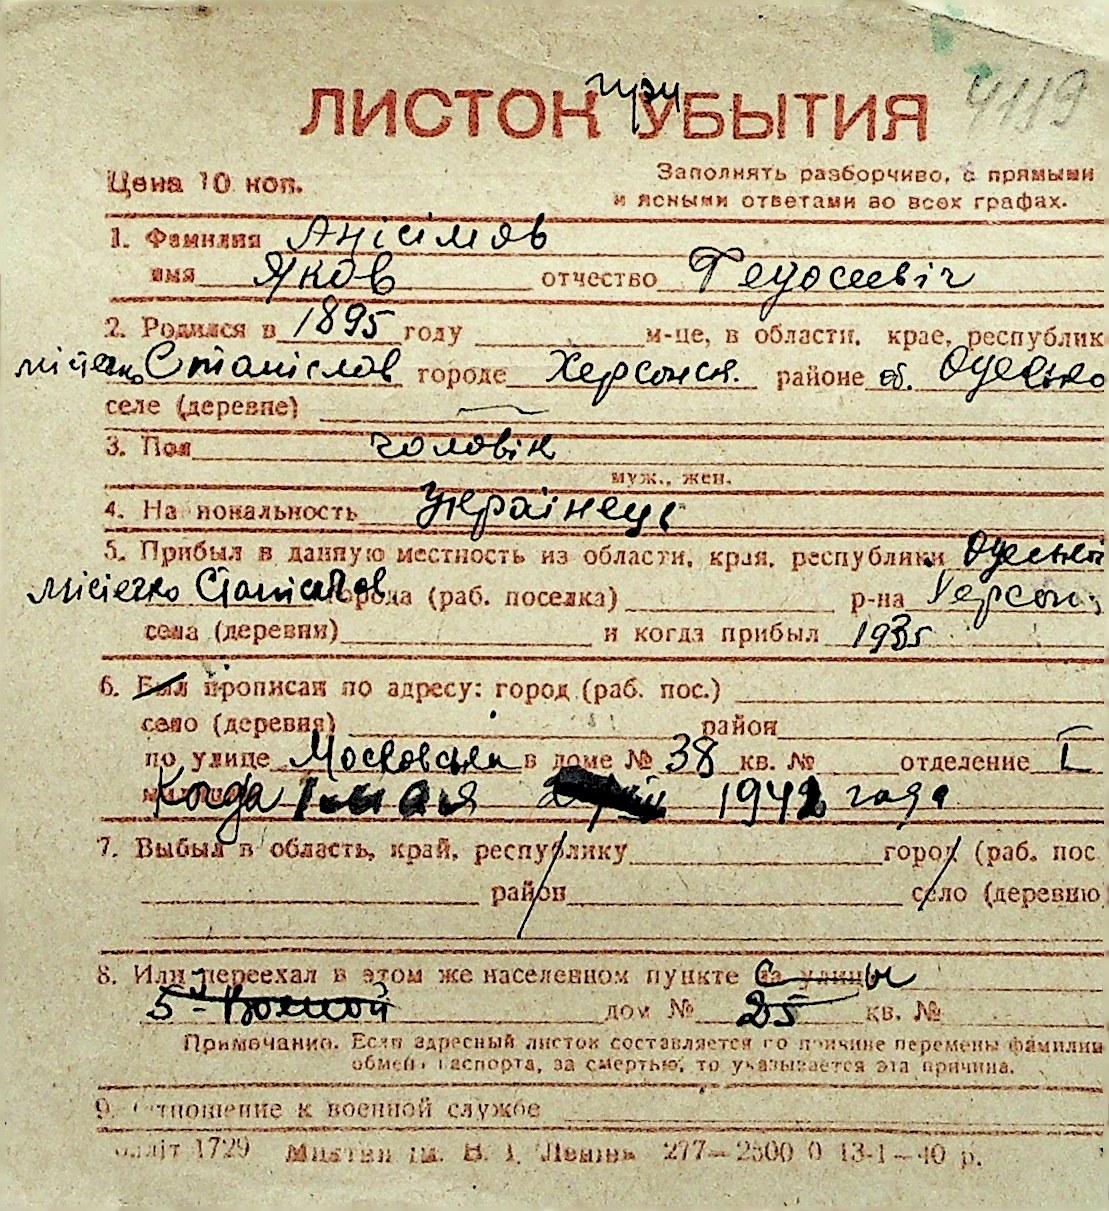 ЛИСТОК УБЫТИЯ 4119
Цена 10 коп. Заполнять разборчиво, с прямыми
и ясными ответами во всех графах.
1. Фамилия Анісімов
имя Яков отчество Федосеевіч
2. Родился в 1895 году м-це, в области, крае, республик
містечко Станіслав городе Херсонск. районе об. Одеська
селе (деревне)
3. Пол чоловік
муж., жен.
4. На иональность Українець
5. Прибыл в данную местность из области, края, республики Одеській
містечко Станіслав города (раб. поселка) р-на Херсон.
села (деревни) и когда прибыл 1935
6. Был прописан по адресу: город (раб. пос.)
село (деревня) район
по улице Московська в доме № 38 кв. № отделение I
Когда 1942 года
7. Выбыл в область, край, республику город (раб. пос
район село (деревню
8. Или переехал в этом же населенном пункте с улицы
5-Военой дом № 25 кв. №
Примечание. Если адресный листок составляется по причине перемены фамилии
обмена паспорта, за смертью, то указывается эта причина.
9. Отношение к военной службе
олліт 1729 Миктип ім. В. І. Леніна 277—2500 0 13-1—40 р.